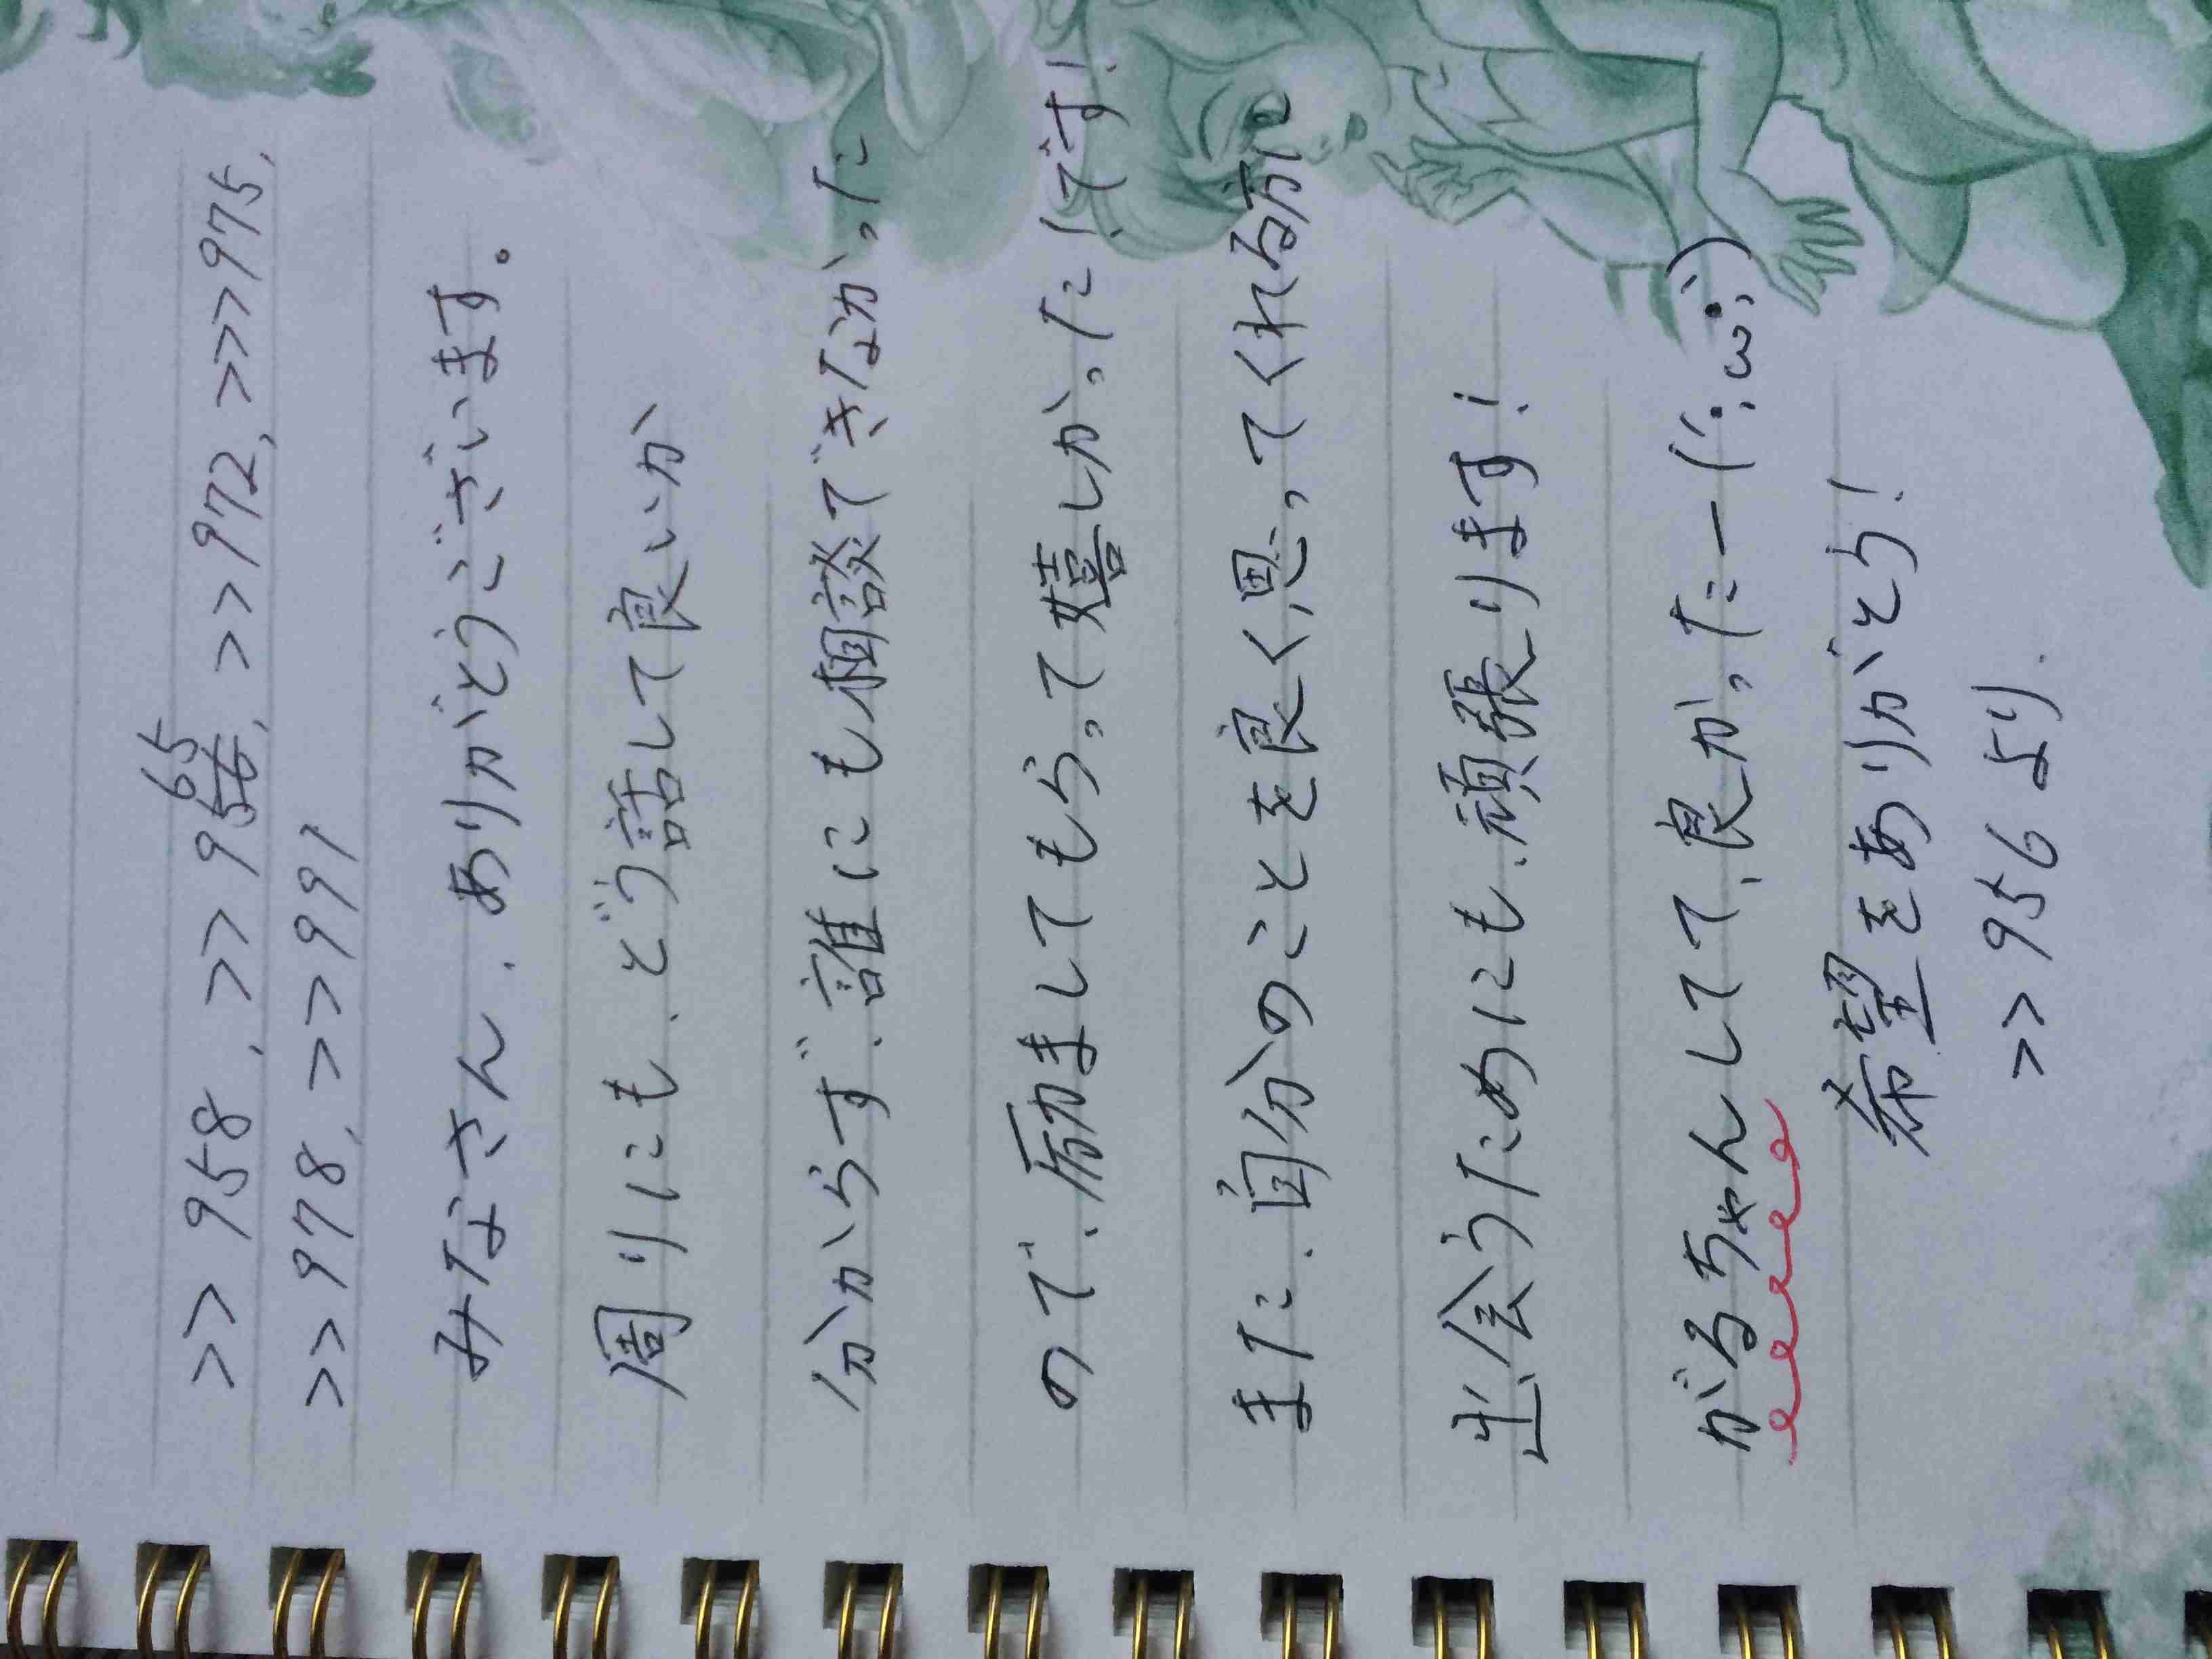 >>958、>>965、>>972、>>975、
>>978、>>991
みなさん、ありがとうございます。
周りにも、どう話して良いか
分からず、誰にも相談できなかった
ので、励ましてもらって嬉しかったです!
また、自分のことを良く思ってくれる方に
出会うためにも、頑張ります!
がるちゃんしてて、良かったー(´;ω;`)
希望をありがとう!
>>956より.